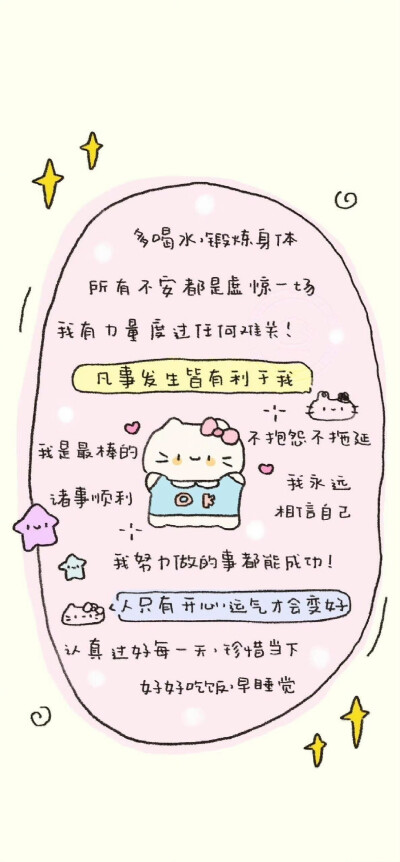 多喝水,锻炼身体
所有不安都是虚惊一场
我有力量度过任何难关!
凡事发生皆有利于我
我是最棒的
不抱怨不拖延
诸事顺利
OK
我永远
相信自己
我努力做的事都能成功!
人只有开心,运气才会变好
认真过好每一天,珍惜当下
好好吃饭,早睡觉